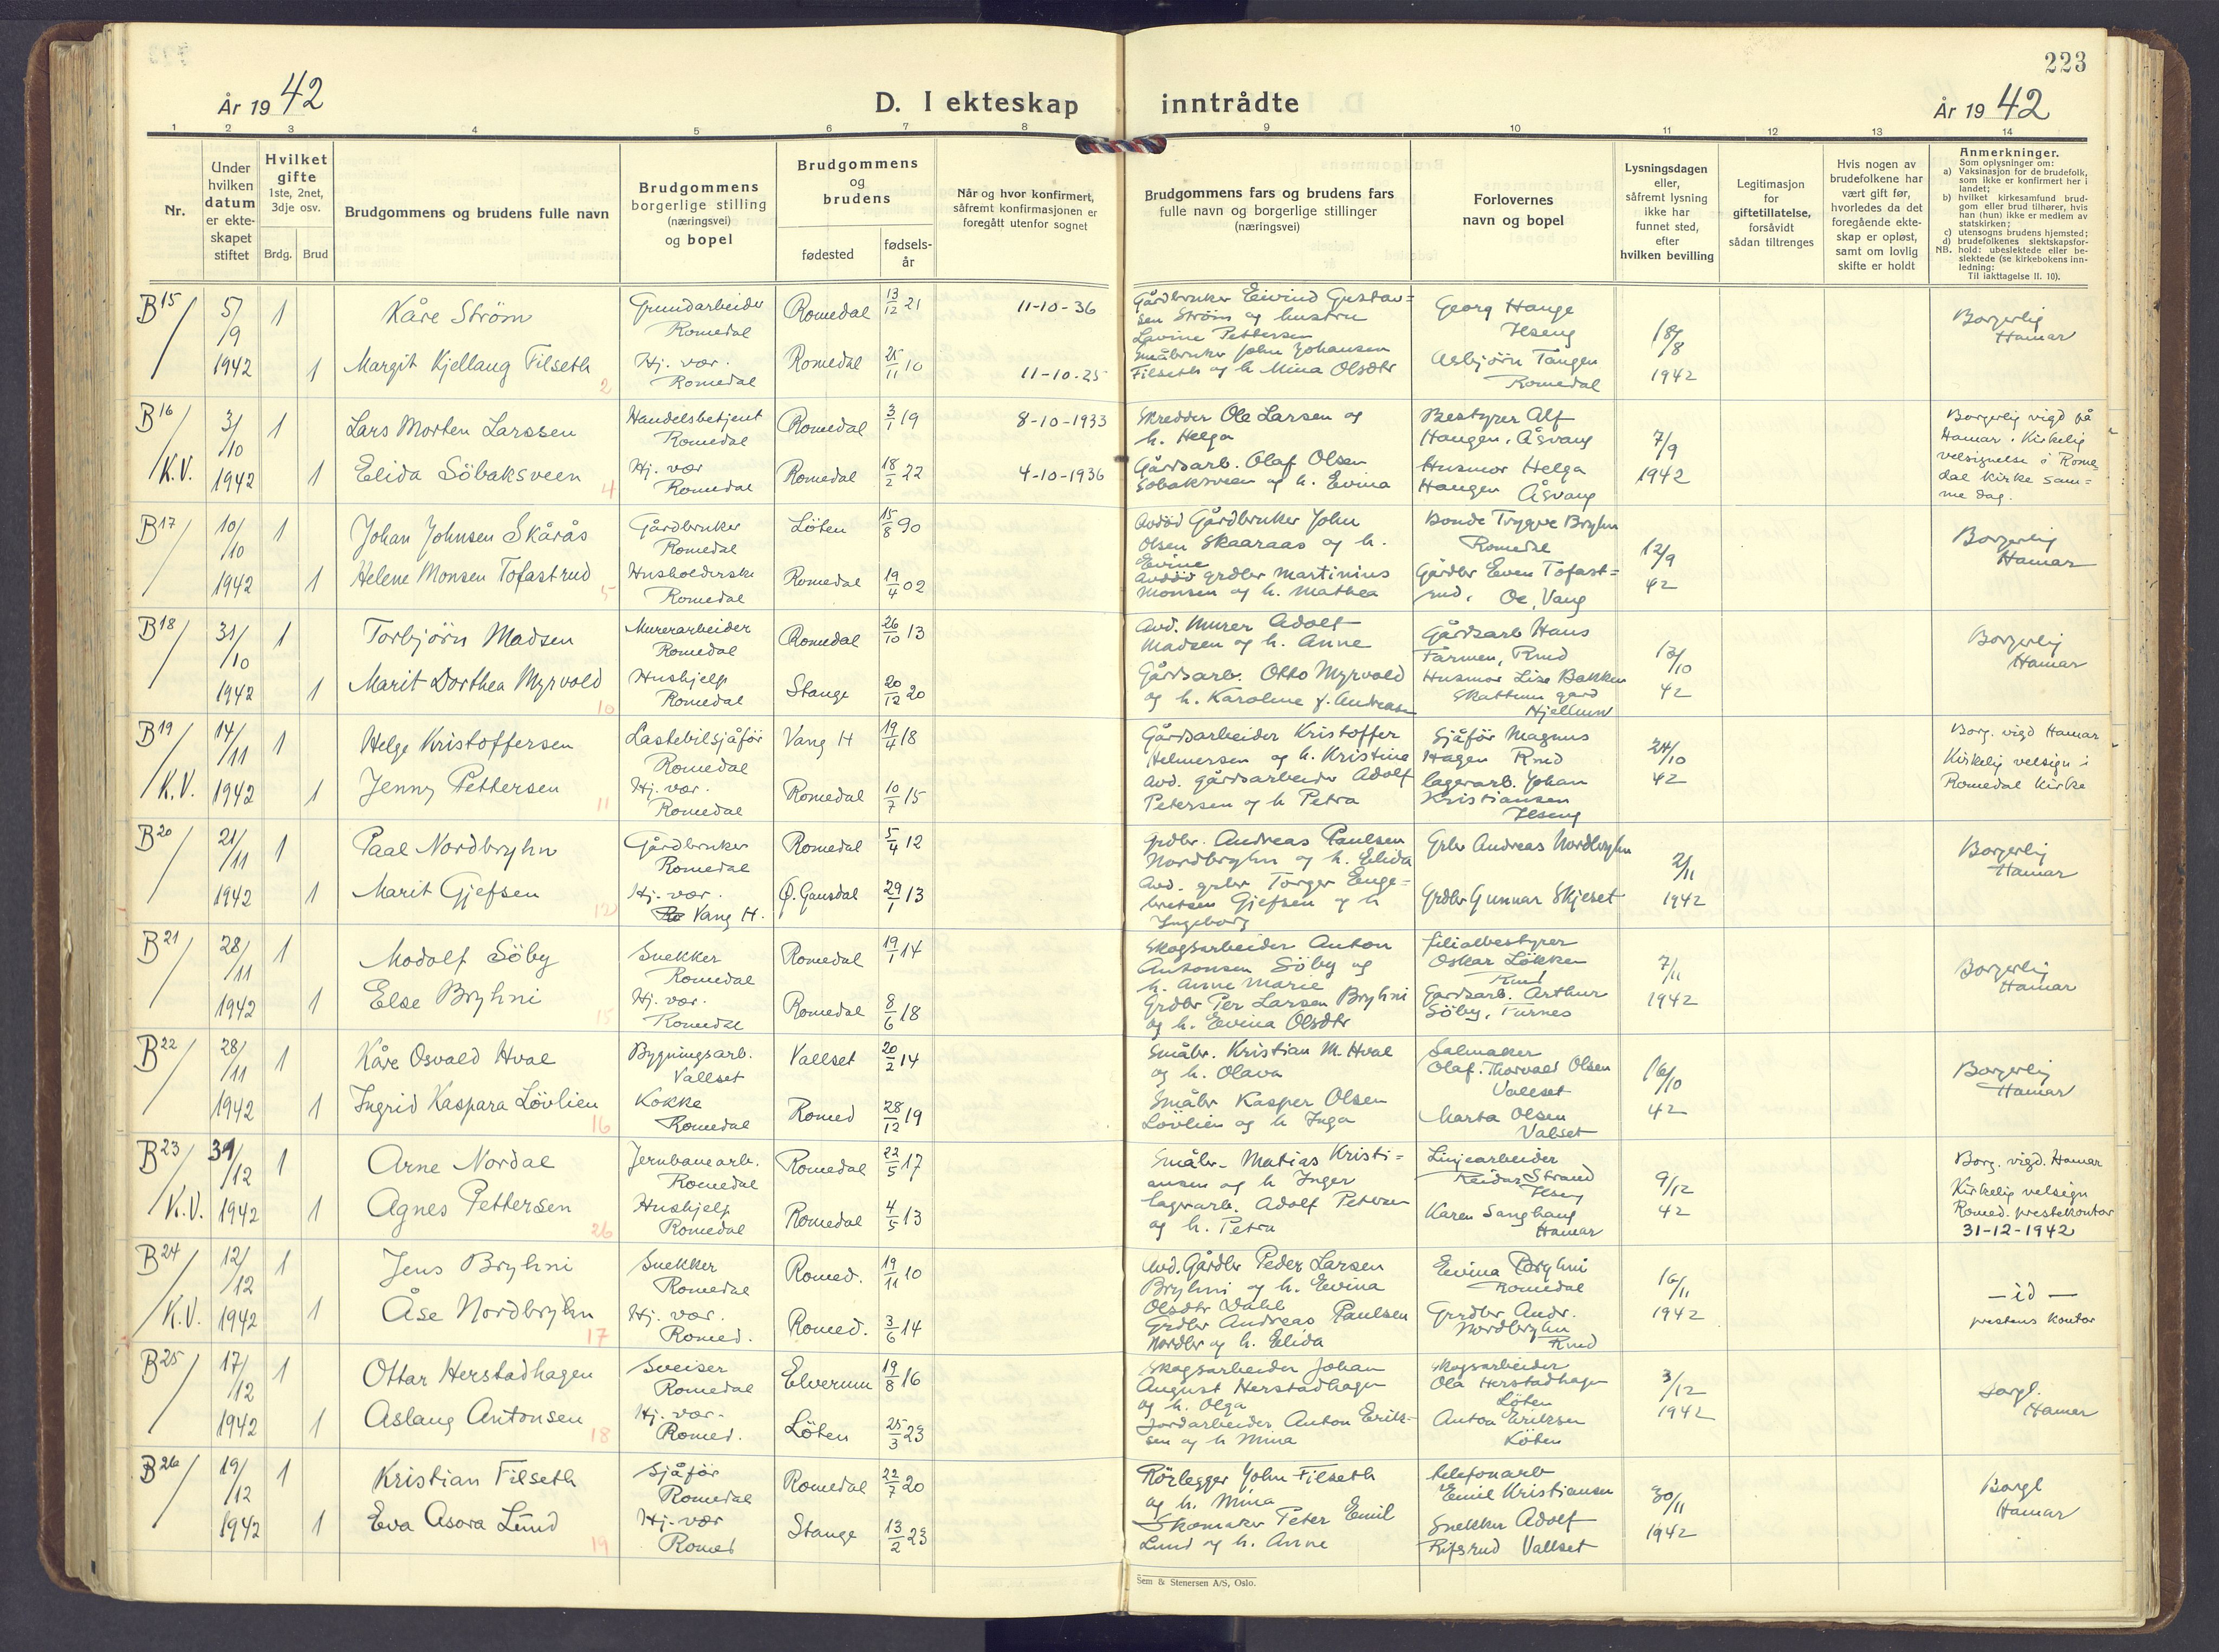 223
År 1942
D. I ekteskap inntrådte
År 1942
1 2 3 4 5 6 7 8 9 10 11 12 13 14
Nr.
Under hvilken datum er ekteskapet stiftet
Hvilket gifte
1ste, 2net, 3dje osv.
Brdg. Brud
Brudgommens og brudens fulle navn
Brudgommens borgerlige stilling (næringsvei) og bopel
Brudgommens og brudens
fødested
fødselsår
Når og hvor konfirmert, såfremt konfirmasjonen er foregått utenfor sognet
Brudgommens fars og brudens fars fulle navn og borgerlige stillinger (næringsvei)
Forlovernes navn og bopel
Lysningsdagen eller, såfremt lysning ikke har funnet sted, efter hvilken bevilling
Legitimasjon for giftetillatelse, forsåvidt sådan tiltrenges
Hvis nogen av brudefolkene har vært gift før, hvorledes da det foregående ekteskap er opløst, samt om lovlig skifte er holdt
Anmerkninger.
Som oplysninger om:
a) Vaksinasjon for de brudefolk, som ikke er konfirmert her i landet;
b) hvilket kirkesamfund brudgom eller brud tilhører, hvis han (hun) ikke er medlem av statskirken;
c) utensogns brudens hjemsted;
d) brudefolkenes slektskapsforhold: ubeslektede eller beslektede (se kirkebokens innledning:
NB. Til iakttagelse II. 10).
B15 5/9 1942 1 Kåre Ström Grundarbeider Romedal Romedal 13/12 21 11-10-36 Gårdbruker Eivind Gustavsen Ström og hustru Lavine Pettersen Georg Hauge Ilseng 18/8 1942 Borgerlig Hamar
1 Margit Kjellaug Filseth 2 Hj. vær. Romedal Romedal 25/11 10 11-10-25 Småbruker John Johansen Filseth og h. Mina Olsdtr Asbjörn Tangen Romedal
B16 K.V. 3/10 1942 1 Lars Morten Larssen Handelsbetjent Romedal Romedal 3/1 19 8-10-1933 Skredder Ole Larsen og h. Helga Bestyrer Alf Haugen, Åsvang 7/9 1942 Borgerlig vigd på Hamar. Kirkelig velsignelse i Romedal kirke samme dag.
1 Elida Söbaksveen 4 Hj. vær Romedal Romedal 18/2 22 4-10-1936 Gårdsarb. Olaf Olsen Söbaksveen og h. Evina Husmor Helga Haugen Åsvang
B17 10/10 1942 1 Johan Johnsen Skårås Gårdbruker Romedal Löten 15/8 90 Avdöd Gårdbruker John Olsen Skaaraas og h. Evine Bonde Trygve Bryhn Romedal 12/9 42 Borgerlig Hamar
1 Helene Monsen Tofastrud 5 Husholderske Romedal Romedal 19/4 02 Avdöd grdbr Martinius Monsen og h. Mathea Gårdbr Even Tofastrud, Vang
B18 31/10 1942 1 Torbjörn Madsen Murerarbeider Romedal Romedal 26/10 13 Avd. Murer Adolf Madsen og h. Anne Gårdsarb Hans Farmen, Rmd 13/10 42 Borgerlig Hamar
1 Marit Dorthea Myrvold 10 Hushjelp Romedal Stange 20/12 20 Gårdsarb. Otto Myrvold og h. Karoline f. Andreasen Husmor Lise Bakken Skattum gård Hjellum
B19 K.V. 14/11 1942 1 Helge Kristoffersen Lastebilsjåför Romedal Vang H 19/4 18 Gårdsarbeider Kristoffer Helmersen og h. Kristine Sjåför Magnus Hagen Rmd 24/10 42 Borg. vigd Hamar Kirkelig velsign i Romedal Kirke
1 Jenny Pettersen 11 Hj. vær. Romedal Romedal 10/7 15 avd. gårdsarbeider Adolf Petersen og h Petra lagerarb. Johan Kristiansen Ilseng
B20 21/11 1942 1 Paal Nordbryhn Gårdbruker Romedal Romedal 5/4 12 grdbr. Andreas Paulsen Nordbryhn og h. Elida Grbr Andreas Nordbryhn 2/11 1942 Borgerlig Hamar
1 Marit Gjefsen 12 Hj. vær. Vang H. Ø. Gausdal 29/1 13 Avd. grbr Torger Engebretsen Gjefsen og h Ingeborg Grdbr Gunnar Skjeset
B21 28/11 1942 1 Modolf Söby Snekker Romedal Romedal 19/1 14 Skogsarbeider Anton Antonsen Söby og h. Anne Marie filialbestyrer Oskar Lökken Rmd 7/11 1942 Borgerlig Hamar
1 Else Bryhni 15 Hj. vær. Romedal Romedal 8/6 18 Grdbr Per Larsen Bryhni og h. Evina Olsdtr Gårdsarb. Arthur Söby, Furnes
B22 28/11 1942 1 Kåre Osvald Hval Bygningsarb. Vallset Vallset 20/2 14 Småbr. Kristian M. Hval og h. Olava Salmaker Olaf Thorvald Olsen Vallset 16/10 42 Borgerlig Hamar
1 Ingrid Kaspara Lövlien 16 Kokke Romedal Romed 28/12 19 Småbr Kasper Olsen Lövlien og h Inga Marta Olsen Valset
B23 K.V. 31/12 1942 1 Arne Nordal Jernbanearb. Romedal Romedal 22/5 17 Småbr. Matias Kristiansen og h Inger Linjearbeider Reidar Strand Ilseng 9/12 42 Borg. vigd. Hamar Kirkelig velsign Romed. prestekontor 31-12-1942
1 Agnes Pettersen 26 Hushjelp Romedal Romedal 4/5 13 lagerarb. Adolf Petersen og h. Petra Karen Sanghaug Hamar
B24 K.V. 12/12 1942 1 Jens Bryhni Snekker Romedal Romed. 19/11 10 Avd. Gårdbr Peder Larsen Bryhni og h. Evina Olsdtr Dahl Evina Bryhni Romedal 16/11 1942 — id — prestens kontor
1 Åse Nordbryhn 17 Hj. vær. Romed. Romed. 3/6 14 Grdbr Andreas Paulsen Nordbr og h. Elida Grdbr Andr. Nordbryhn Rmd
B25 17/12 1942 1 Ottar Herstadhagen Sveiser Romedal Elverum 19/8 16 Skogsarbeider Johan August Herstadhagen og h. Olga Skogsarbeider Ola Herstadhagen Löten 3/12 1942 Borgl. Hamar
1 Aslaug Antonsen 18 Hj. vær. Romed. Löten 25/3 23 Jordarbeider Anton Eriksen og h Mina Anton Eriksen Löten
B26 19/12 1942 1 Kristian Filseth Sjåför Romedal Romedal 22/7 20 Rörlegger John Filseth og h. Mina telefonarb Emil Kristiansen 30/11 1942 Borgl Hamar
1 Eva Asora Lund 19 Hj. vær Romed Stange 13/2 23 Skomaker Peter Emil Lund og h. Anne Snekker Adolf Rifsrud Vallset
Sem & Stenersen A/S, Oslo.